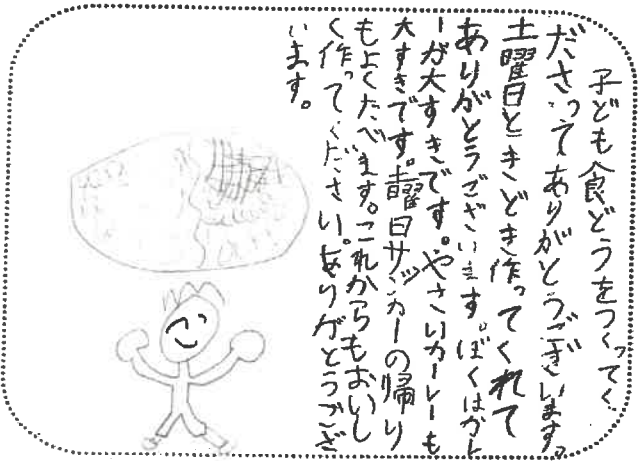 子ども食どうをつくってく
ださってありがとうございます。
土曜日ときどき作ってくれて
ありがとうございます。ぼくはカレ
ーが大すきです。やさいカレーも
大すきです。土曜日サッカーの帰り
もよくたべます。これからもおいし
く作ってください。ありがとうござ
います。